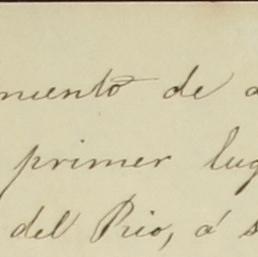 miento de a
primer lug
del Rio, á s